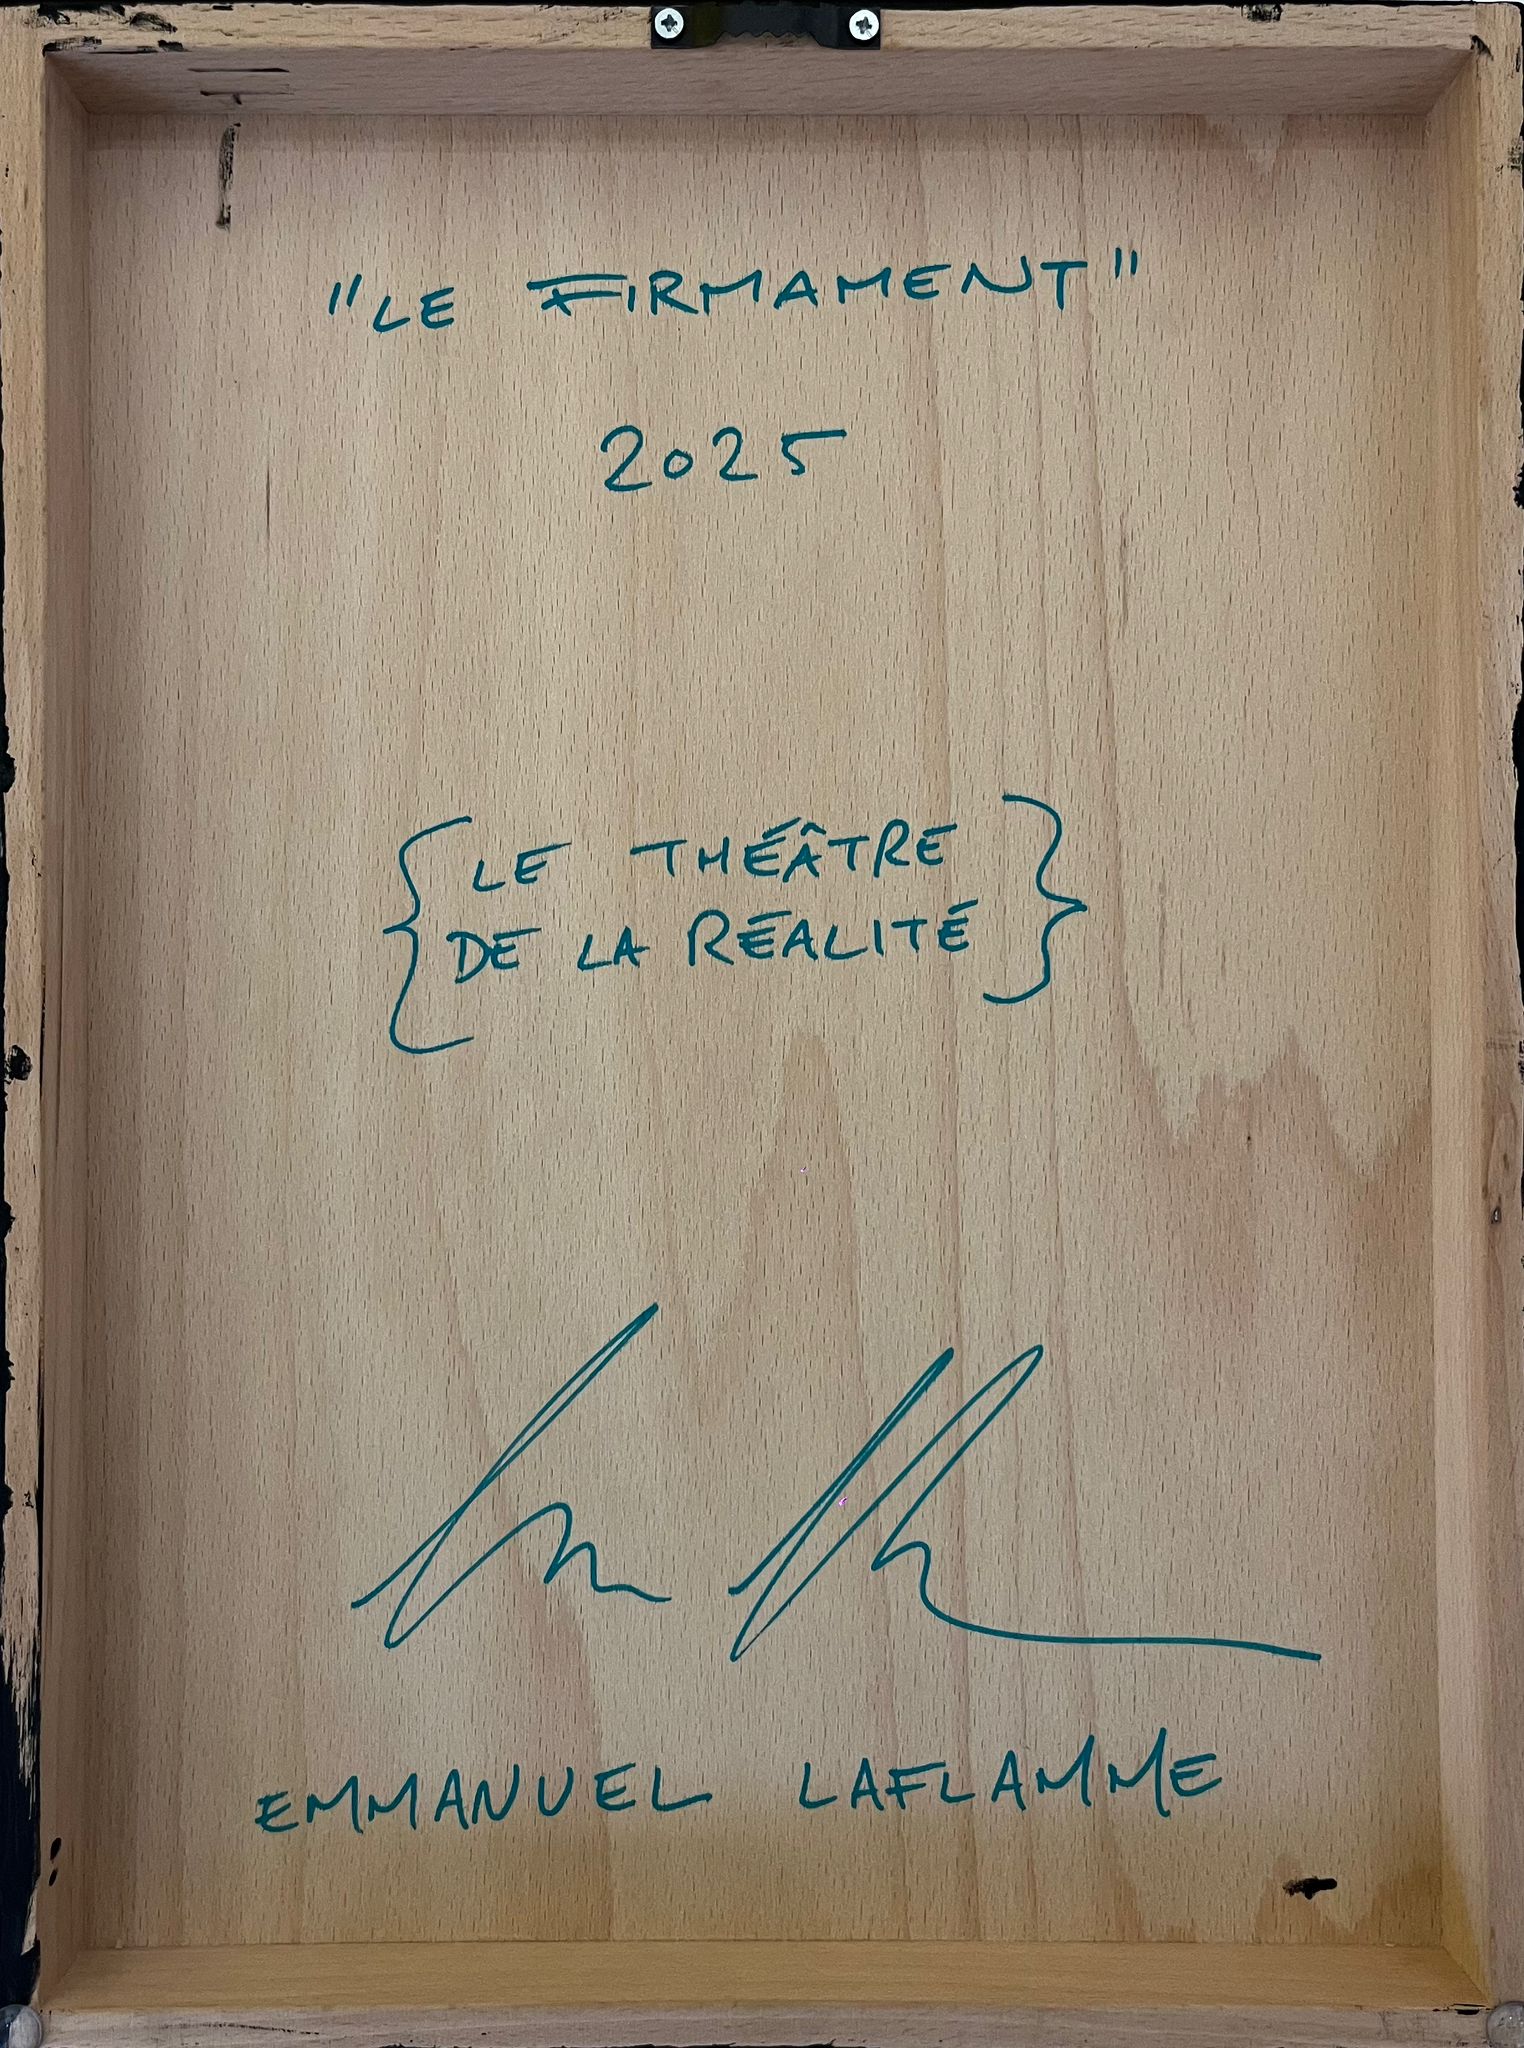 "LE FIRMAMENT"
2025
{LE THÉÂTRE
DE LA RÉALITÉ}
EMMANUEL LAFLAMME